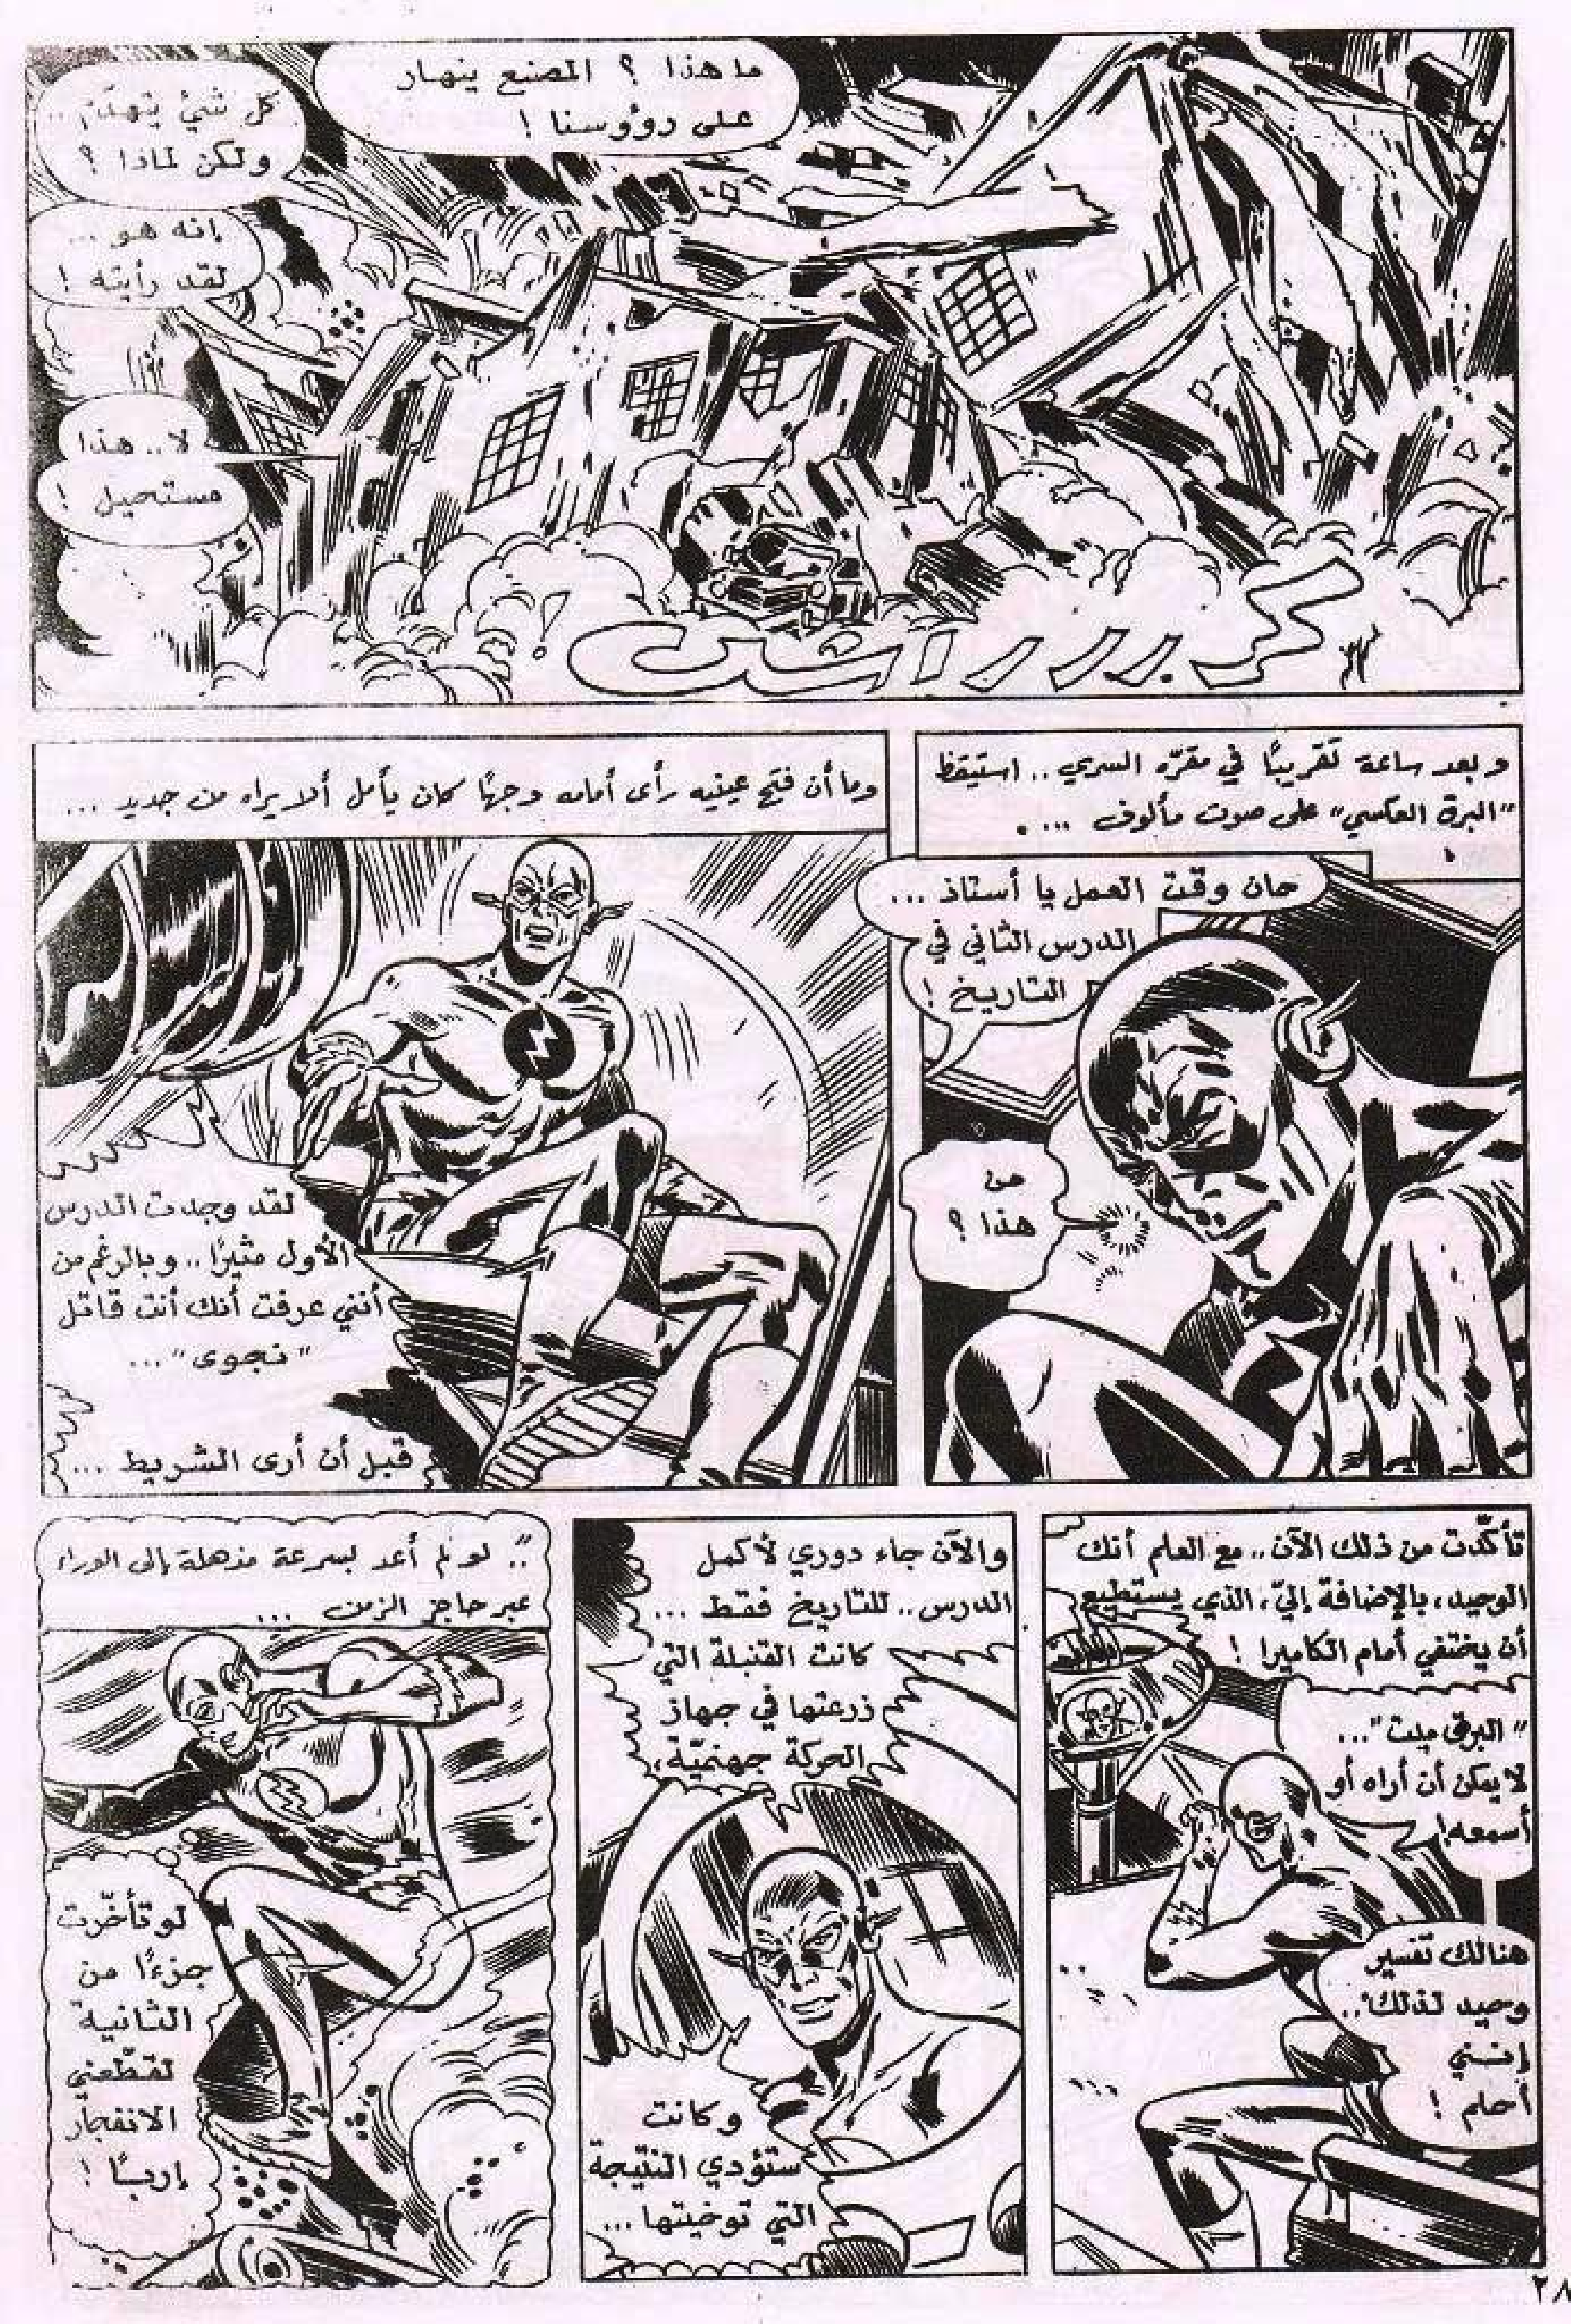 ما هذا ؟ المصنع ينهار
على رؤوسنا !
كل شيء يتهدّم ..
ولكن لماذا ؟
إنه هو ...
لقد رأيته !
لا .. هذا
مستحيل !
كررررراش !
وبعد ساعة تقريبًا في مقرّه السري .. استيقظ
"البرق العكسي" على صوت مألوف ...
حان وقت العمل يا أستاذ ...
الدرس الثاني في
التاريخ !
من
هذا ؟
وما أن فتح عينيه رأى أمامه وجهًا كان يأمل ألا يراه من جديد ...
لقد وجدت الدرس
الأول مثيرًا .. وبالرغم من
أنني عرفت أنك أنت قاتل
"نجوى" ...
قبل أن أرى الشريط ...
تأكّدت من ذلك الآن .. مع العلم أنك
الوحيد، بالإضافة إليّ، الذي يستطيع
أن يختفي أمام الكاميرا !
"البرق ميت" ...
لا يمكن أن أراه أو
أسمعه!
هنالك تفسير
وحيد لذلك ..
إنني
أحلم !
والآن جاء دوري لأكمل
الدرس .. للتاريخ فقط ...
كانت القنبلة التي
زرعتها في جهاز
الحركة جهنميّة،
وكانت
ستؤدي النتيجة
التي توخيتها ...
".. لو لم أعد بسرعة مذهلة إلى الوراء
عبر حاجز الزمن ...
لو تأخّرت
جزءًا من
الثانية
لقطّعني
الانفجار
إربًا !
٢٨